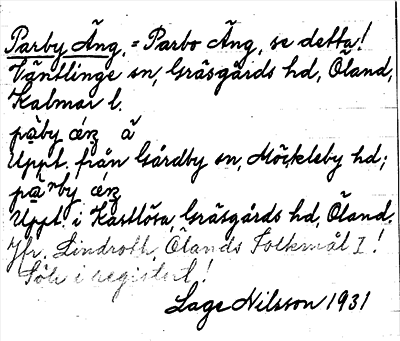 Parby Äng, = Parbo Äng, se detta!
Väntlinge sn, Gräsgårds hd, Öland,
Kalmar l.
pàby ǽŋ ã
Uppt. från Gårdby sn, Möckleby hd;
pàʳby ǽŋ
Uppt. i Kastlösa, Gräsgårds hd, Öland.
Jfr. Lindroth, Ölands Folkmål I!
Sök i registret!
Lage Nilsson 1931